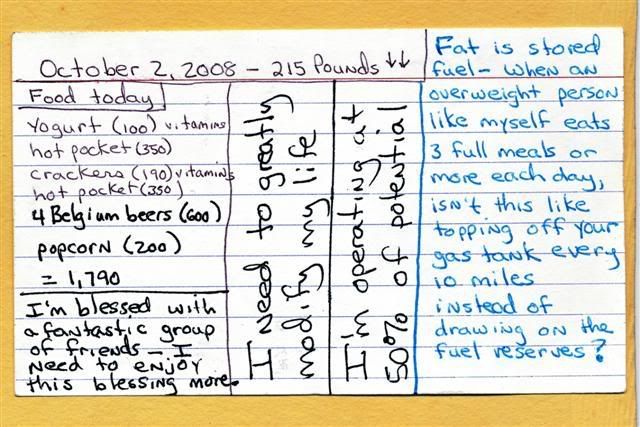 October 2, 2008 - 215 Pounds ↓↓
Food today
Yogurt (100) vitamins
hot pocket (350)
crackers (190) vitamins
hot pocket (350)
4 Belgium beers (600)
popcorn (200)
= 1,790
I'm blessed with
a fantastic group
of friends - I
need to enjoy
this blessing more.
I need to greatly
modify my life
I'm operating at
50% of potential
Fat is stored
fuel - when an
overweight person
like myself eats
3 full meals or
more each day,
isn't this like
topping off your
gas tank every
10 miles
instead of
drawing on the
fuel reserves?